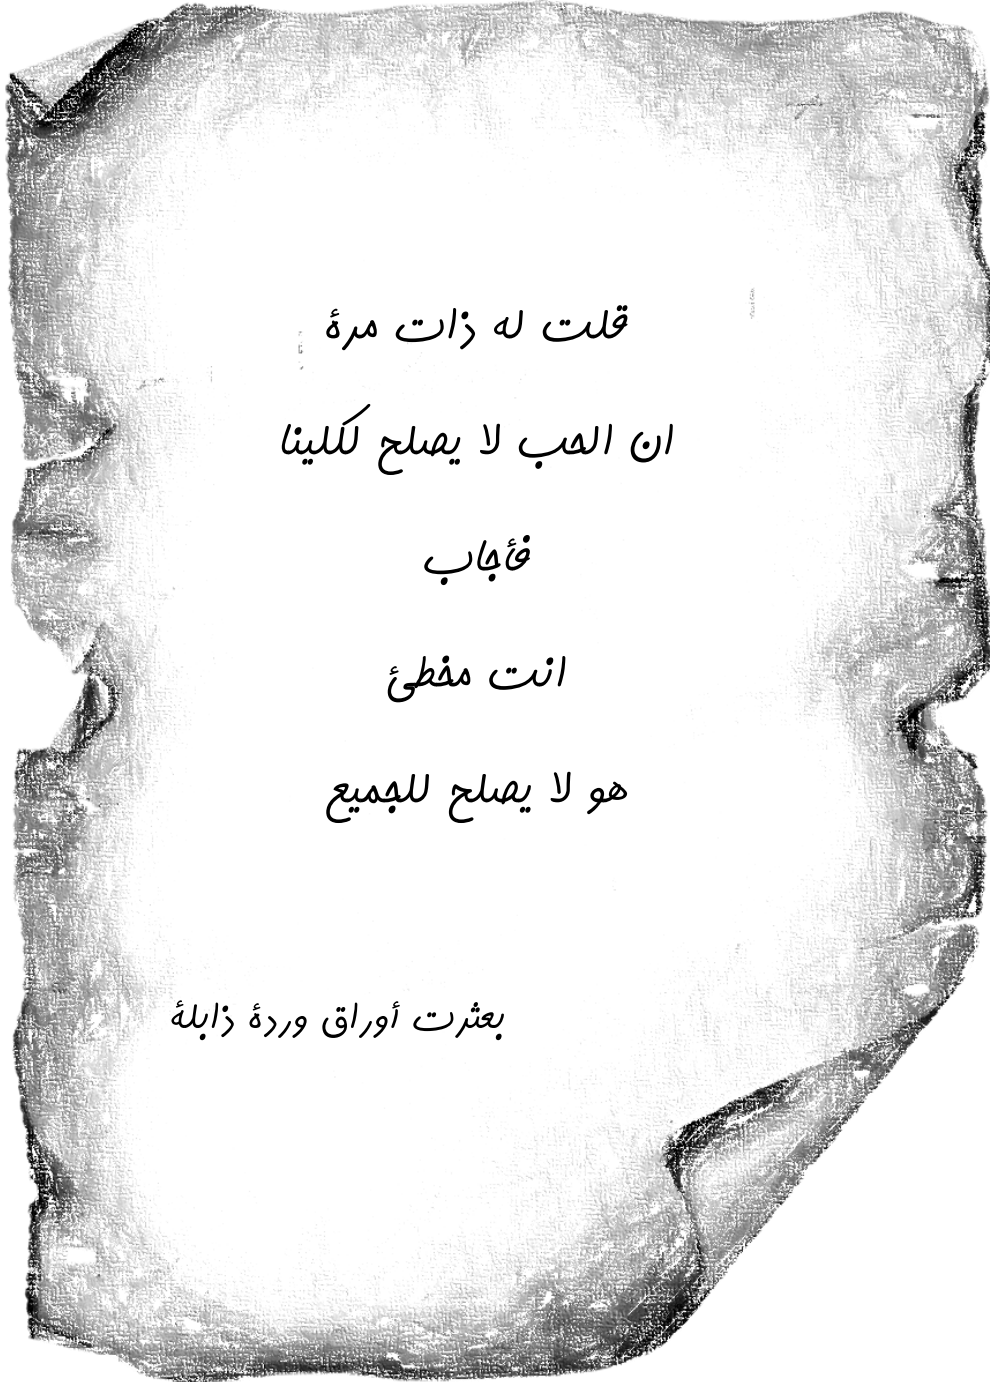 قلت له ذات مرة
ان الحب لا يصلح لكلينا
فأجاب
انت مخطئ
هو لا يصلح للجميع
بعثرت أوراق وردة ذابلة